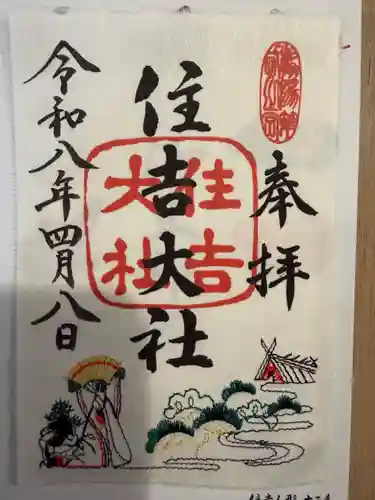 奉拝
住吉
大社
住吉大社
令和八年四月八日